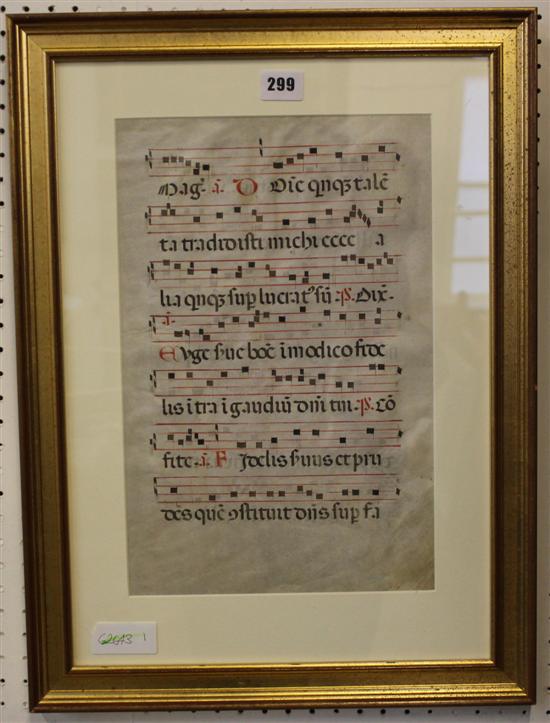 299
Mag. ā. D Oīe qnqꝫ talē
ta tradidisti michi ecce a
lia qnqꝫ suꝑ lucrat' sū. ps. Dix̄.
ā.
Euge sue boē ī modico fide
lis ī tra ī gaudiū dn̄i tui. ps. Cō
fite. ā. F idelis suus et pru
dēs quē ꝯstituit dn̄s suꝑ fa
62043 1